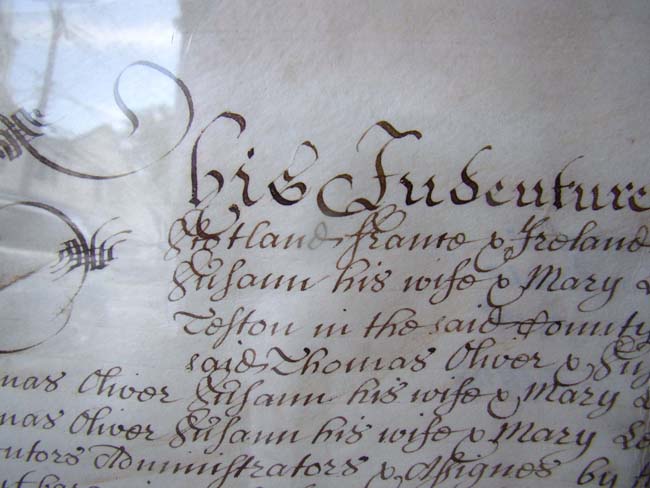 This Indenture
Scotland France & Ireland
Susann his wife & Mary
Teston in the said County
said Thomas Oliver & Sus
mas Oliver Susann his wife & Mary Le
mas Oliver Susann his wife & Mary Le
cutors Administrators & Assignes by